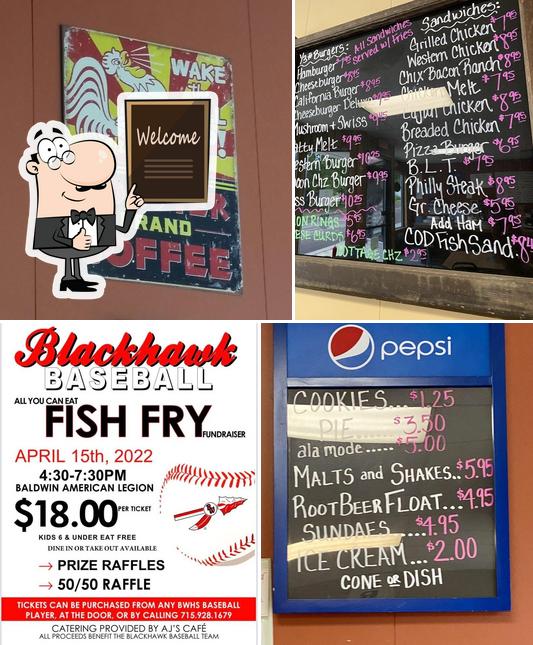 WAKE
Welcome
BRAND
COFFEE
1/3# Burgers:
All Sandwiches
served w/ Fries
Hamburger $7.95
Cheeseburger $8.45
California Burger $8.95
Cheeseburger Deluxe
Mushroom & Swiss
Patty Melt $9.95
Western Burger $10.25
Bacon Chz Burger $9.95
Swiss Burger $10.25
ONION RINGS
CHEESE CURDS
COTTAGE CHZ $2.95
Sandwiches:
Grilled Chicken $7.95
Western Chicken $8.95
Chix Bacon Ranch $8.95
Chick'n Melt $7.95
Cajun Chicken $8.95
Breaded Chicken $7.95
Pizza Burger
B.L.T. $7.95
Philly Steak $8.95
Gr. Cheese $5.95
Add Ham $7.95
COD Fish Sand.
Blackhawk
BASEBALL
ALL YOU CAN EAT
FISH FRY FUNDRAISER
APRIL 15th, 2022
4:30-7:30PM
BALDWIN AMERICAN LEGION
$18.00 PER TICKET
KIDS 6 & UNDER EAT FREE
DINE IN OR TAKE OUT AVAILABLE
→ PRIZE RAFFLES
→ 50/50 RAFFLE
TICKETS CAN BE PURCHASED FROM ANY BWHS BASEBALL
PLAYER, AT THE DOOR, OR BY CALLING 715.928.1679
CATERING PROVIDED BY AJ'S CAFÉ
ALL PROCEEDS BENEFIT THE BLACKHAWK BASEBALL TEAM
pepsi
COOKIES...$1.25
PIE......$3.50
ala mode.....$5.00
MALTS and SHAKES..$5.95
ROOT BEER FLOAT...$4.95
SUNDAES....$4.95
ICE CREAM...$2.00
CONE OR DISH